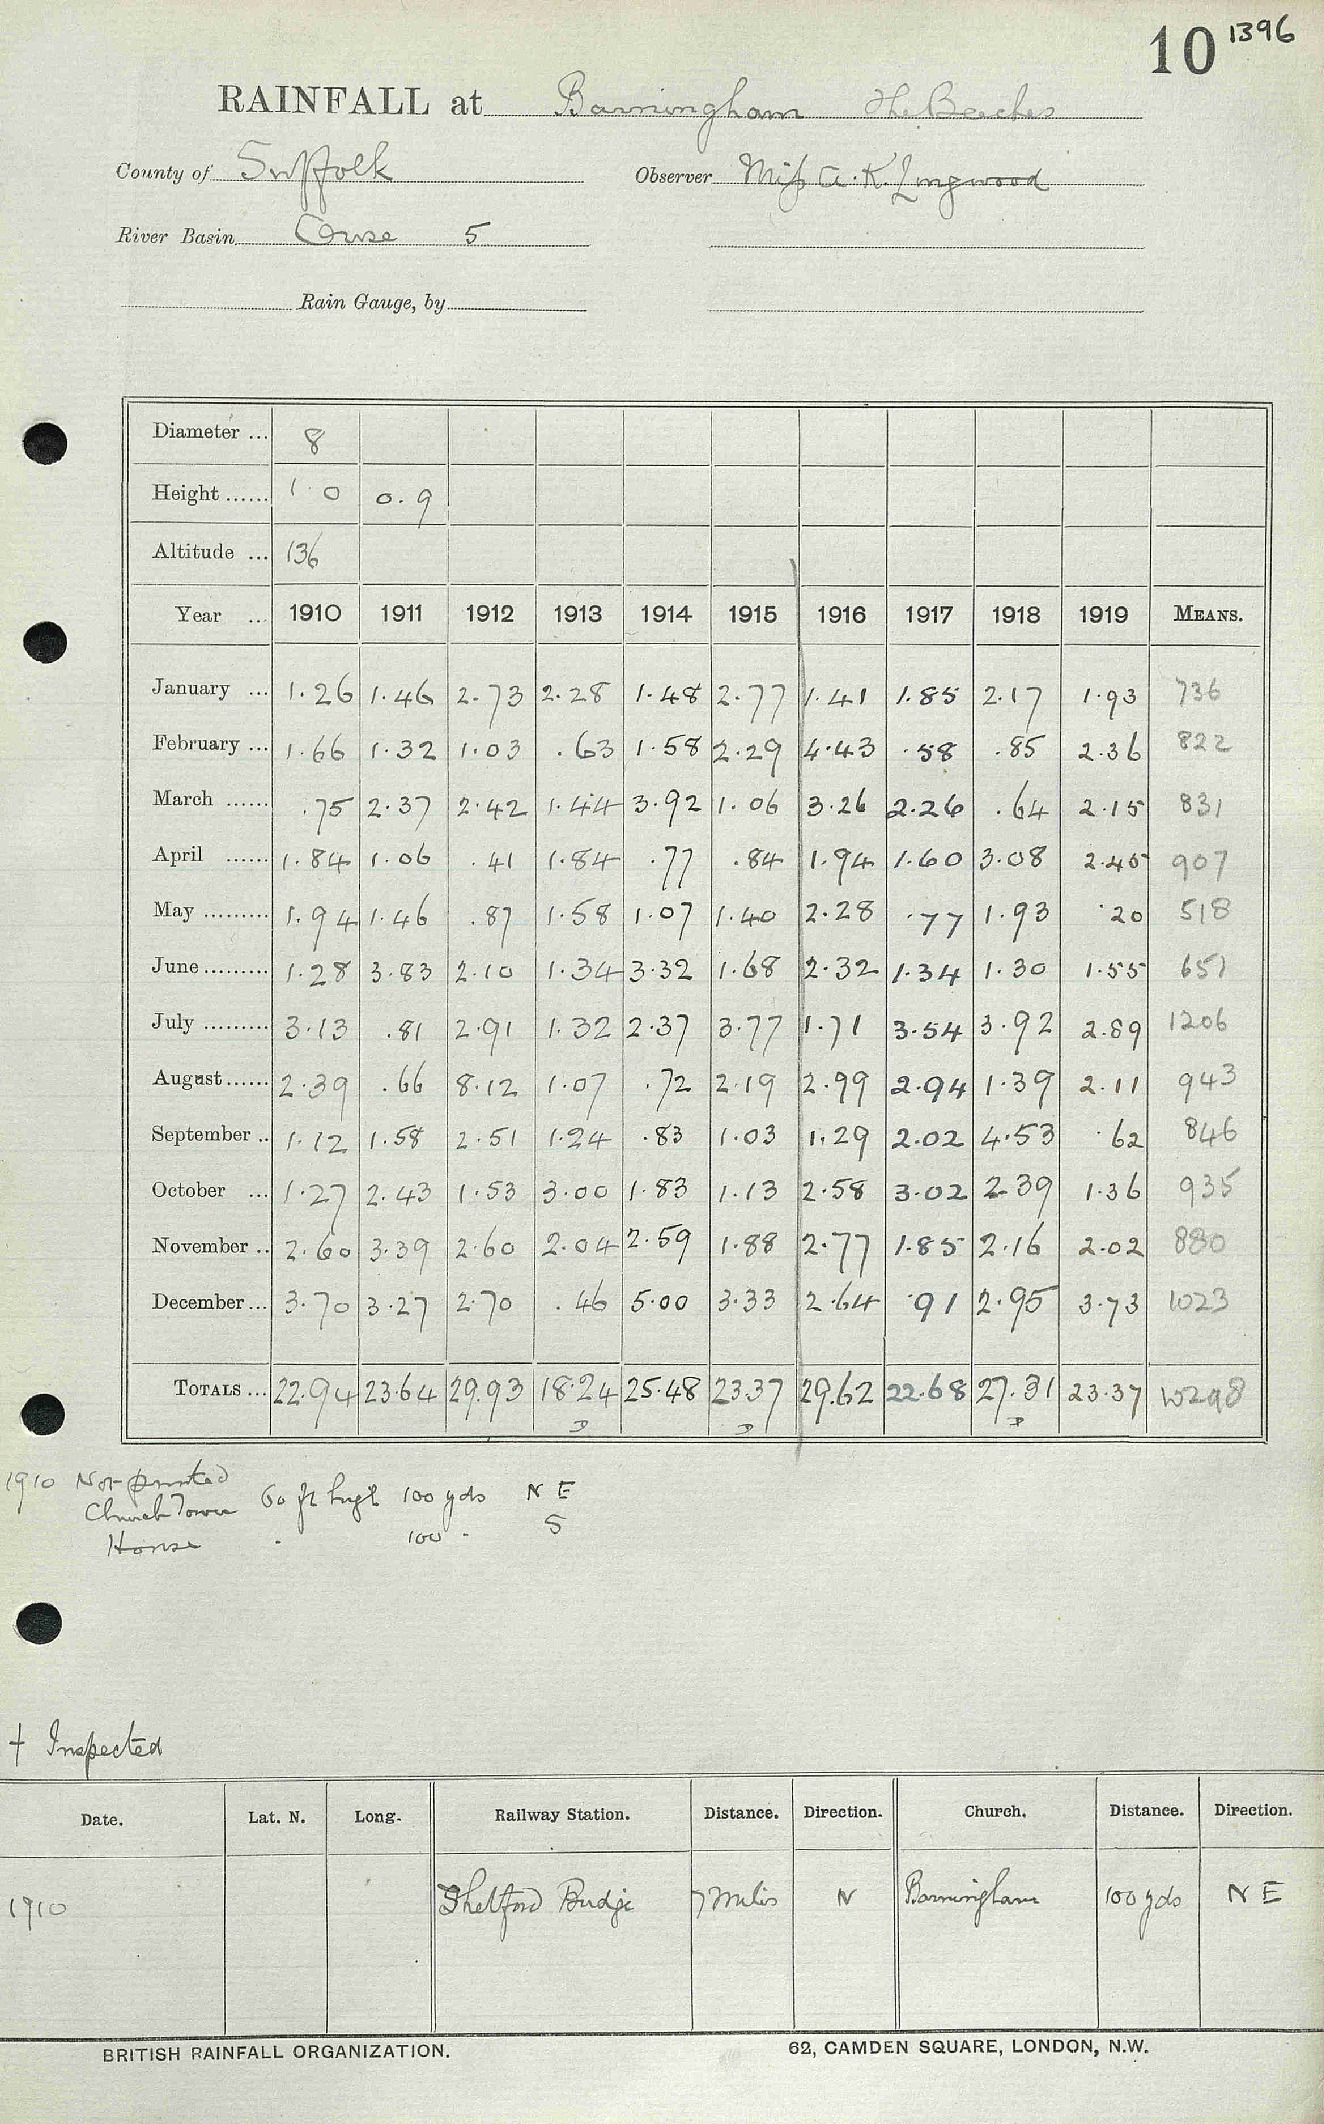 10 1396
RAINFALL at Barningham The Beeches
County of Suffolk Observer Miss A. K. Lingwood
River Basin Ouse 5
Rain Gauge, by
Diameter ... 8
Height ...... 1.0 0.9
Altitude ... 136
Year ... 1910 1911 1912 1913 1914 1915 1916 1917 1918 1919 MEANS.
January ... 1.26 1.46 2.73 2.28 1.48 2.77 1.41 1.85 2.17 1.93 736
February ... 1.66 1.32 1.03 .63 1.58 2.29 4.43 .58 .85 2.36 822
March ...... .75 2.37 2.42 1.44 3.92 1.06 3.26 2.26 .64 2.15 831
April ...... 1.84 1.06 .41 1.84 .77 .84 1.94 1.60 3.08 2.45 907
May ......... 1.94 1.46 .87 1.58 1.07 1.40 2.28 .77 1.93 .20 518
June ......... 1.28 3.83 2.10 1.34 3.32 1.68 2.32 1.34 1.30 1.55 651
July ......... 3.13 .81 2.91 1.32 2.37 3.77 1.71 3.54 3.92 2.89 1206
August ...... 2.39 .66 8.12 1.07 .72 2.19 2.99 2.94 1.39 2.11 943
September .. 1.12 1.58 2.51 1.24 .83 1.03 1.29 2.02 4.53 .62 846
October ... 1.27 2.43 1.53 3.00 1.83 1.13 2.58 3.02 2.39 1.36 935
November .. 2.60 3.39 2.60 2.04 2.59 1.88 2.77 1.85 2.16 2.02 880
December ... 3.70 3.27 2.70 .46 5.00 3.33 2.64 .91 2.95 3.73 1023
TOTALS ... 22.94 23.64 29.93 18.24 25.48 23.37 29.62 22.68 27.31 23.37 10298
D D D
1910 Not printed
Church Tower 60 ft high 100 yds N E
House " 100 " S
† Inspected
Date. Lat. N. Long. Railway Station. Distance. Direction. Church. Distance. Direction.
1910 Thetford Bridge 7 miles N Barningham 100 yds N E
BRITISH RAINFALL ORGANIZATION. 62, CAMDEN SQUARE, LONDON, N.W.